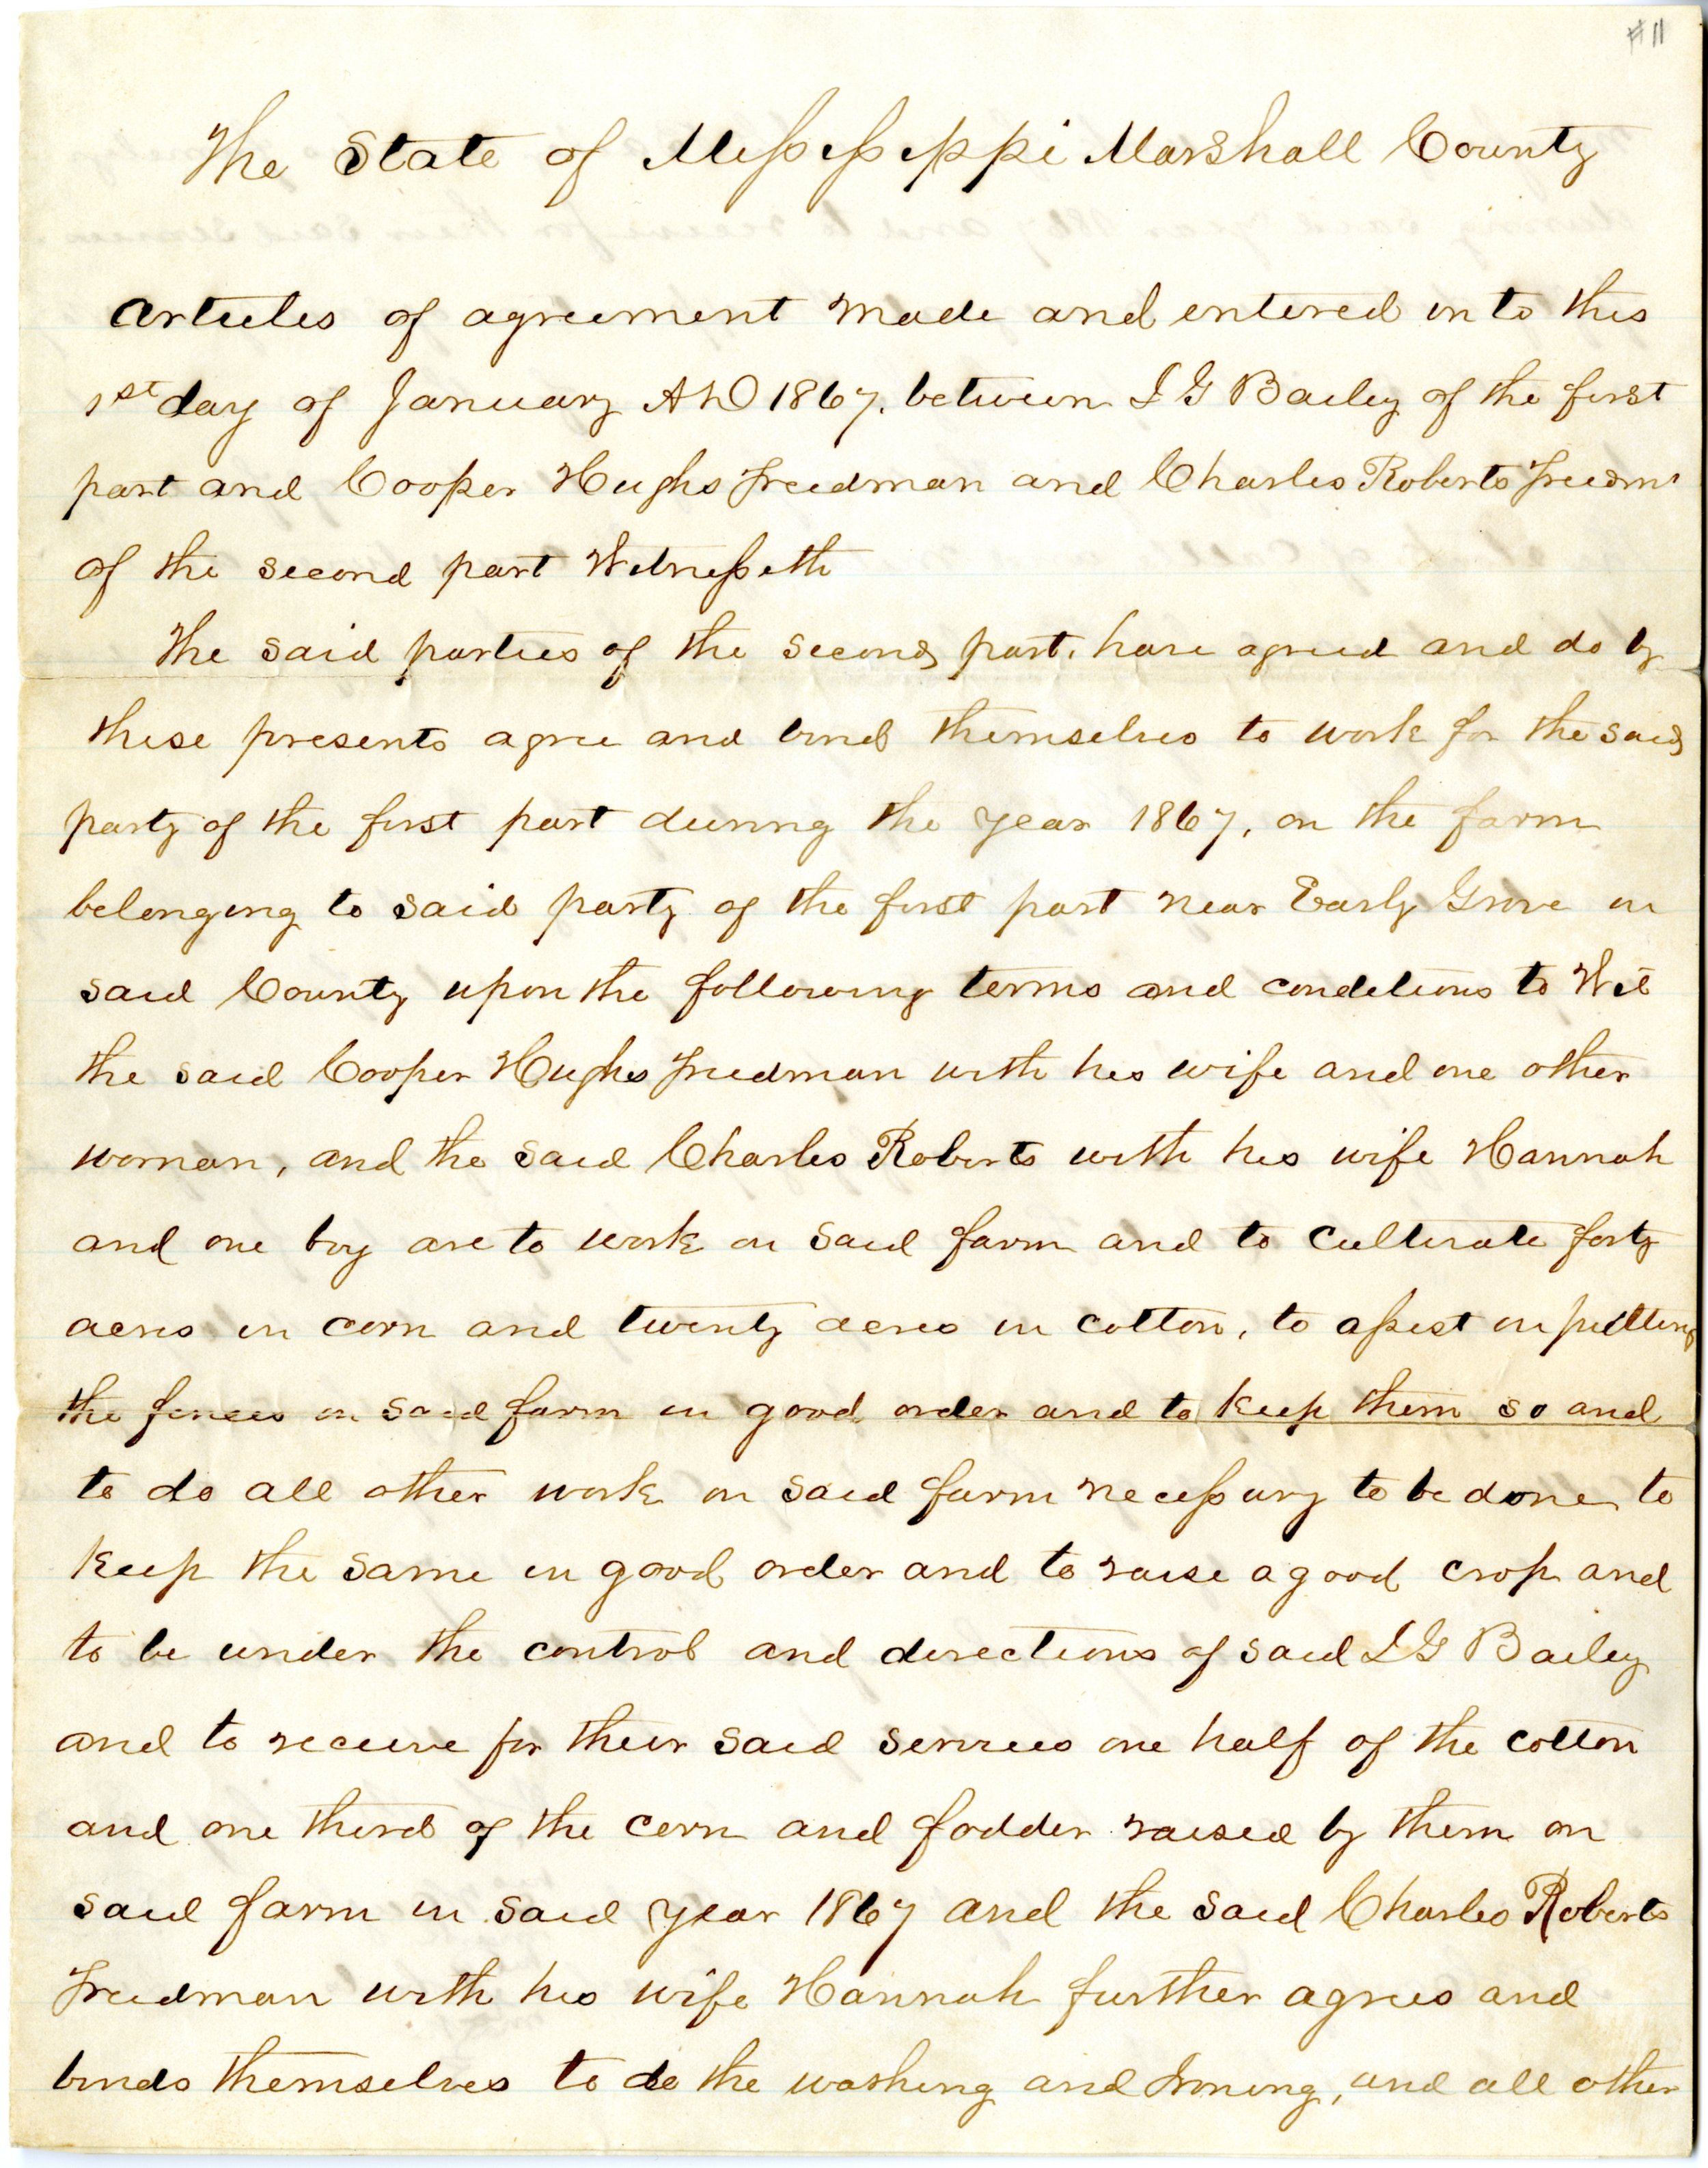 #11
The State of Mississippi Marshall County
Articles of agreement made and entered in to this
1st day of January AD 1867. between I G Bailey of the first
part and Cooper Hughs Freedman and Charles Roberts Freedm
of the second part Witnesseth
The said parties of the second part. have agreed and do by
these presents agree and bind themselves to work for the said
party of the first part during the year 1867, on the farm
belonging to said party of the first part near Early Grove in
said County upon the following terms and conditions to Wit
the said Cooper Hughs Freedman with his wife and one other
woman, and the said Charles Roberts with his wife Hannah
and one boy are to work on said farm and to cultivate forty
acres in corn and twenty acres in cotton, to assist in putting
the fences on said farm in good order and to keep them so and
to do all other work on said farm necessary to be done to
keep the same in good order and to raise a good crop and
to be under the control and directions of said I G Bailey
and to receive for their said services one half of the cotton
and one third of the corn and fodder raised by them on
said farm in said year 1867 and the said Charles Roberts
Freedman with his wife Hannah further agrees and
binds themselves to do the washing and Ironing, and all other